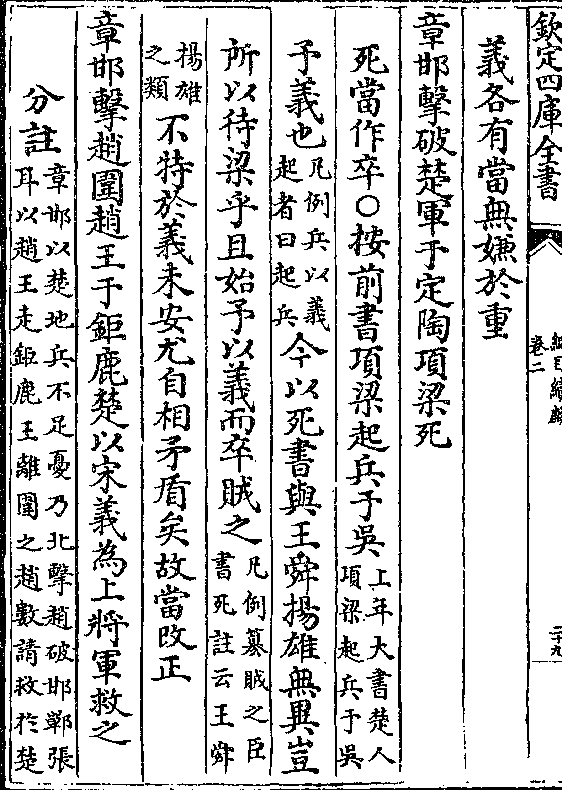 欽定四庫全書
卷二
二十九
義各有當無嫌於重
章邯擊破楚軍于定陶項梁死
死當作卒○按前書項梁起兵于吳上年大書楚人項梁起兵于吳
予義也凡例兵以義起者曰起兵今以死書與王舜揚雄無異豈
所以待梁乎且始予以義而卒賊之凡例篡賊之臣書死註云王舜
揚雄之類不特於義未安尤自相矛盾矣故當改正
章邯擊趙圍趙王于鉅鹿楚以宋義為上將軍救之
分註章邯以楚地兵不足憂乃北擊趙破邯鄲張耳以趙王走鉅鹿王離圍之趙數請救於楚